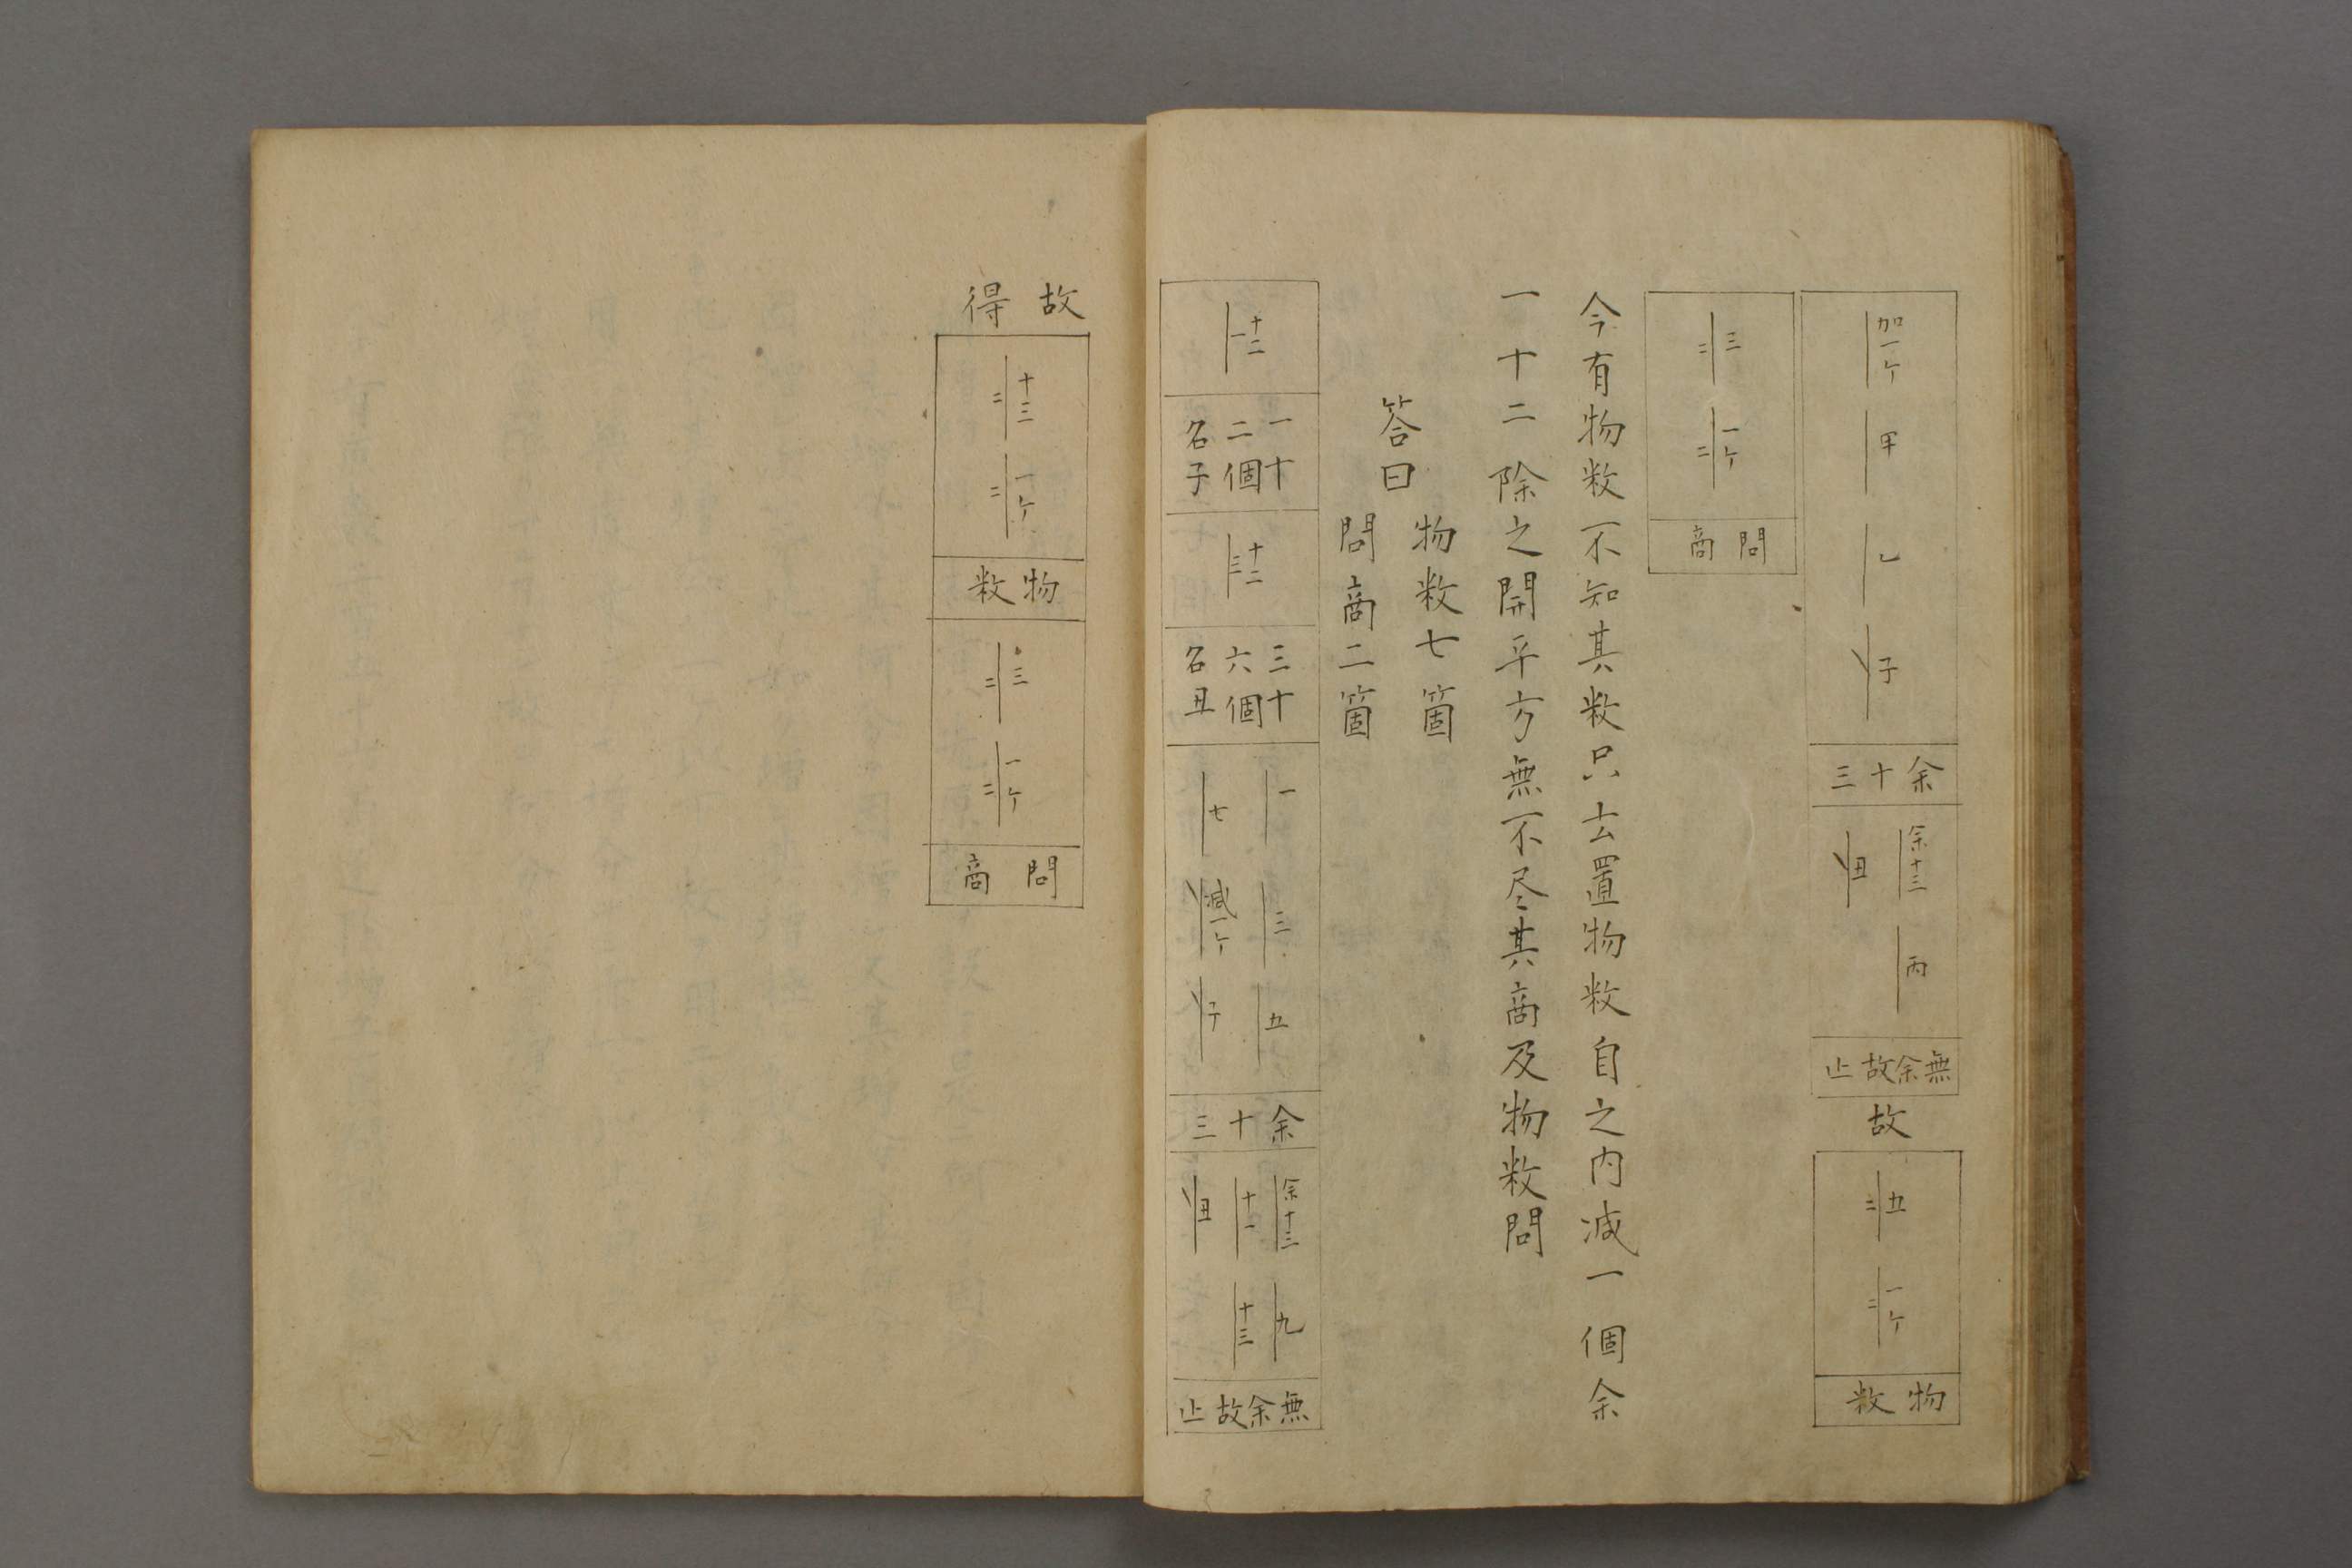 加一ケ 甲 乙 子
余十三
余十三 丙
丑
無余故止
故
二 五
二 一ケ
物数
二 三
二 一ケ
問商
今有物数不知其数只去置物数自之内減一個余
一十二除之開平方無不尽其商及物数問
答曰
物数七箇
問商二箇
一 十二
一十
二個
名子
三 十二
三十
六個
名丑
一 三 五
七 減一ケ 子
余十三
余十三 九
十一 十三
丑
無余故止
故得
二 十三
二 一ケ
物数
二 三
二 一ケ
問商